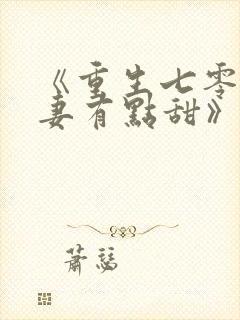 《重生七零
妻有點甜》
蕭瑟